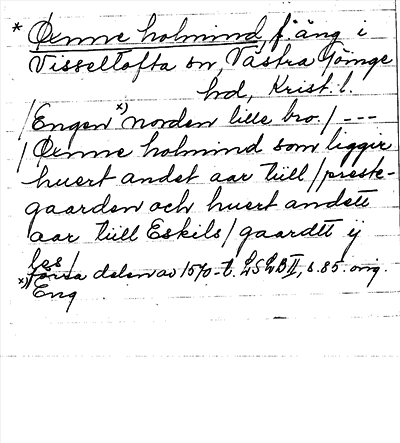 * Ørnne holmind, f. äng i
Visseltofta sn, Västra Göinge
hd, Krist. l.
/Engen x) norden lille bro./ ---
/Ørnne holmind som ligger
huert andet aar tiill/preste-
gaarden och huert andett
aar tiill Eskils/gaardtt ij
les/
förra delen av 1570-t. LSLB II, s. 85. orig.
x) Eng